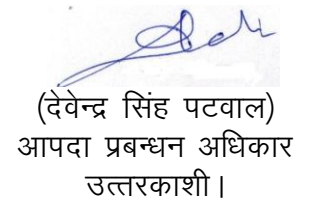 (देवेन्द्र सिंह पटवाल)
आपदा प्रबन्धन अधिकार
उत्तरकाशी।